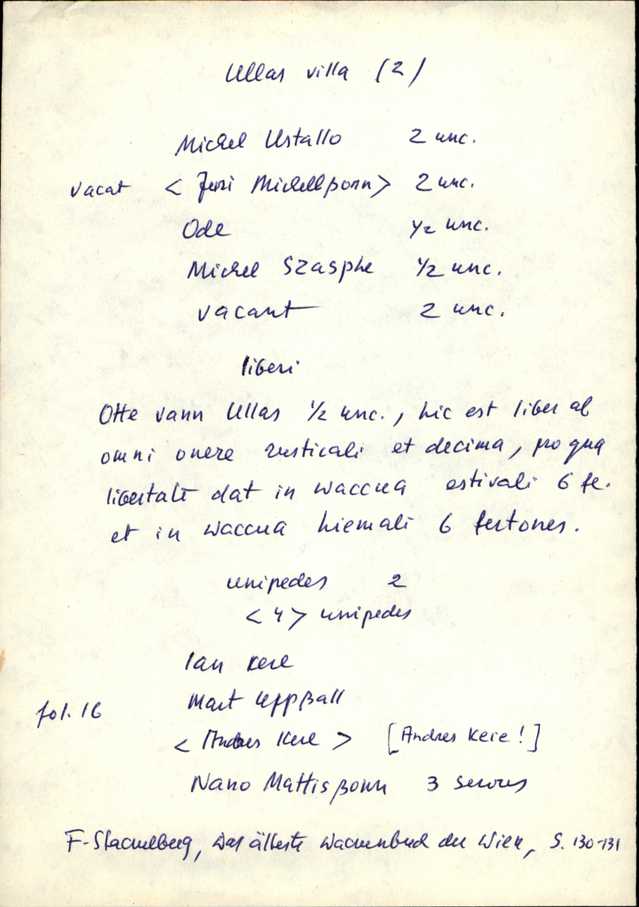 Ullas villa (2)
Michel Ustallo 2 unc.
vacat < Juri Michellßonn> 2 unc.
Ode 1/2 unc.
Michel Szasphe 1/2 unc.
vacant 2 unc.
liberi
Otte vann Ullas 1/2 unc., hic est liber ab
omni onere rusticali et decima, pro qua
libertate dat in waccua estivali 6 fe.
et in waccua hiemali 6 fertones.
unipedes 2
< 4 > unipedes
Ian Kere
fol. 16 Mart Uppßall
< Andres Kere > [Andres Keie!]
Nano Mattisßonn 3
F-Stackelberg, Das älteste Wackenbuch der Wiek, S. 130-131